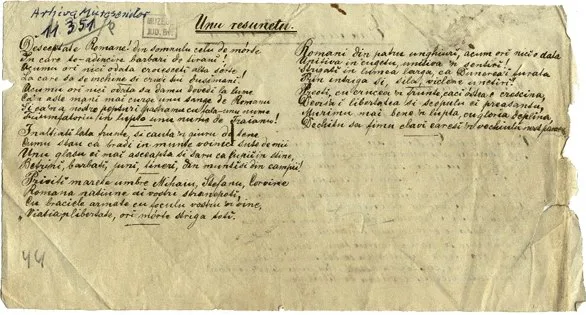 Arhiva Muresenilor
11351/
Unu resunetu.
Desceptate Romane! din somnulu celu de mórte
In care te-adencira barbari de tirani!
Acumu ori nici odata croiesceti alta sórte
La care sa se inchine si crudii tei dusimani!
Acumu ori nici odata sa damu dovedi la lume
Ca'n aste mani mai curge unu sange de Romanu
Si ca'n a nostre pepturi pastramu cu fala unu nume
Triumfatoriu in lupte unu nume de Traianu!
Inalti-ati lata frunte, si cauta 'n giuru de tene
Cumu stau ca bradi in munte voinici sute de mii
Unu glasu ei mai ascepta si saru ca lupii in stine,
Betrani, barbati, juni, tineri, din muntisi din campii!
Priviti marete umbre Mihaiu, Stefanu, Corvine
Romana natiune ai vostri stranepoti
Cu braciele armate cu foculu vostru in vine,
"Viatia 'n libertate, ori mórte striga toti.
Romani din patru unghiuri, acum ori nici odata
Uniti-va in cugetu, uniti-va 'n sentiri!
Strigati in lumea larga, ca Dunarea-i furata
Prin intriga si sila, viclene
Preoti, cu crucea 'n frunte, caci óstea e crestina,
Devisa-i libertatea si scopulu ei preasantu,
Murimu mai bene 'n lupta, cu gloria deplina,
Decâtu sa fimu sclavi earesi in vechiulu nost
44